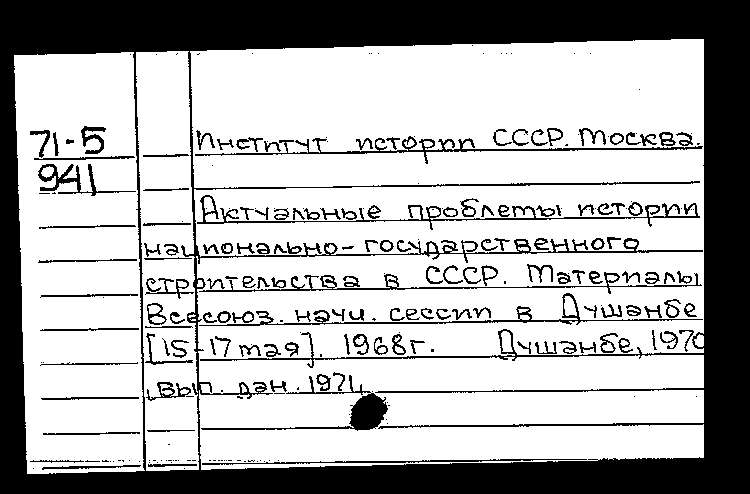 71-5
941
Институт истории СССР. Москва.
Актуальные проблемы истории
национально-государственного
строительства в СССР. Материалы
Всесоюз. научн. сессии в Душанбе
[15-17 мая]. 1968г. Душанбе, 1970
вып. дан. 1971.